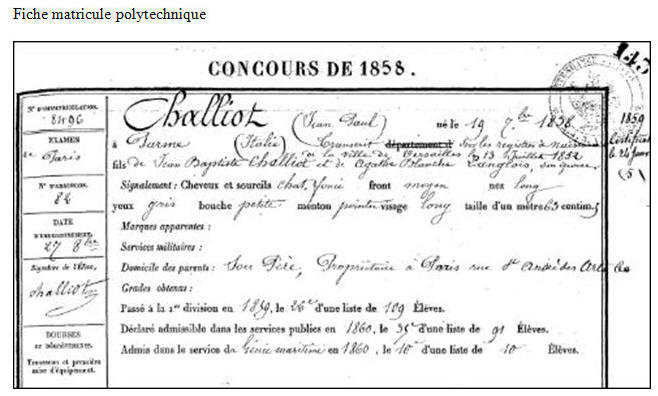 Fiche matricule polytechnique
143
CONCOURS DE 1858.
N° D'IMMATRICULATION.
8496
EXAMEN
de Paris
N° D'ADMISSION.
82
DATE
27 8bre
Signature de l'Élève,
Challiot
BOURSES
Trousseau et première
mise d'équipement.
Challiot (Jean Paul) né le 19 7bre 1838
à Parme (Italie) Transcrit département d sur les registres de
de la ville de Versailles le 13 Juillet 1852
fils de Jean Baptiste Challiot et de Agathe Blanche Langlois, son épouse
Signalement : Cheveux et sourcils chat. foncé front moyen nez long
yeux gris bouche petite menton pointu visage long taille d'un mètre 63 centim.
Marques apparentes :
Services militaires :
Domicile des parents : Son Père, Propriétaire à Paris rue St André des Arts
Grades obtenus :
Passé à la 1re division en 1859, le 26e d'une liste de 109 Élèves.
Déclaré admissible dans les services publics en 1860, le 35e d'une liste de 91 Élèves.
Admis dans le service du Génie maritime en 1860, le 10e d'une liste de 10 Élèves.
1859
Certificat
le 24